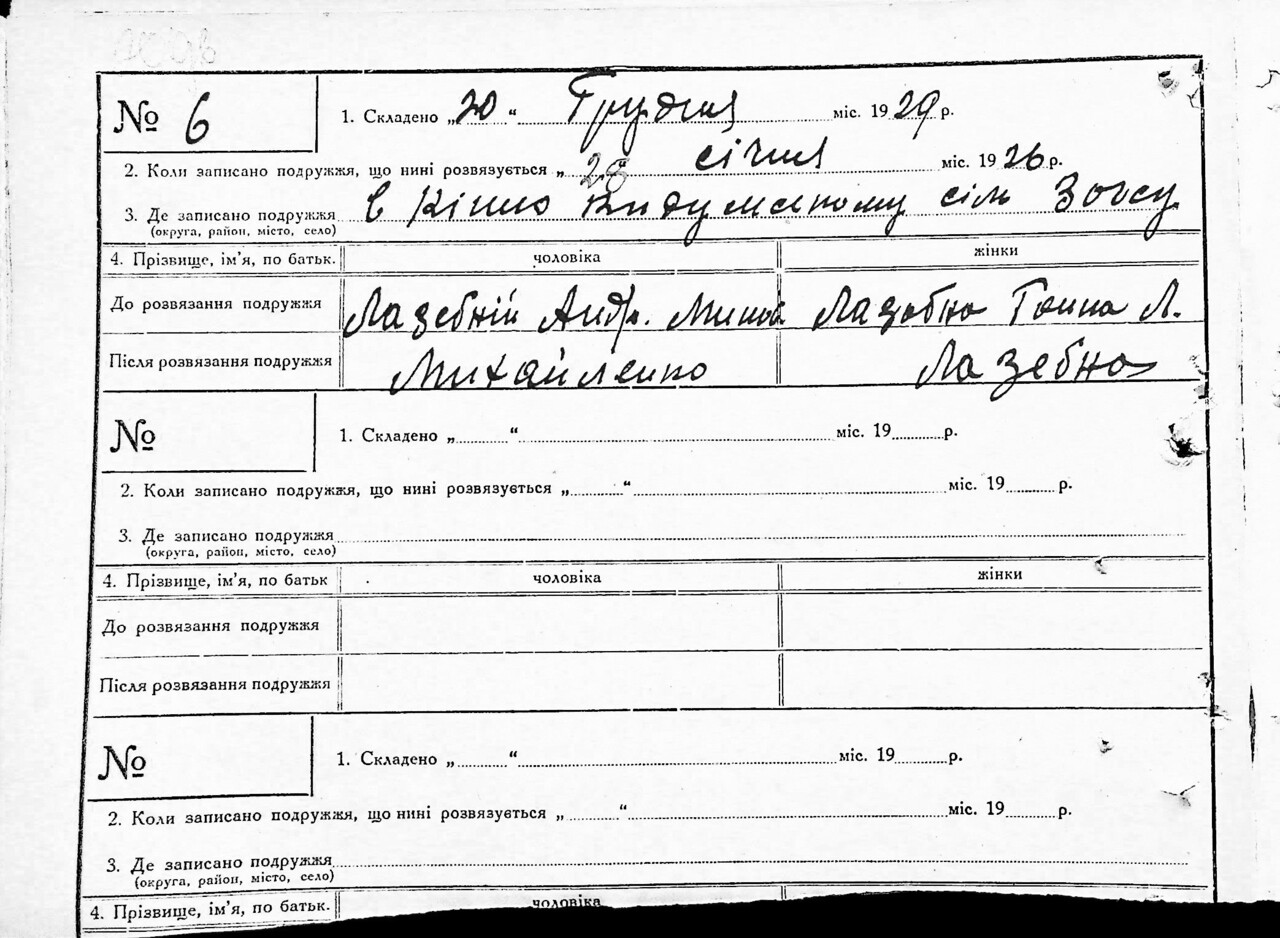 № 6
1. Складено „20“ Грудня міс. 1929 р.
2. Коли записано подружжя, що нині розвязується „28 січня міс. 1926 р.
3. Де записано подружжя в сіль Загсу
(округа, район, місто, село)
4. Прізвище, ім'я, по батьк. чоловіка жінки
До розвязання подружжя Лазебній Андр. Лазебна Ганна Л.
Після розвязання подружжя Михайленко Лазебна
№
1. Складено „ “ міс. 19 р.
2. Коли записано подружжя, що нині розвязується „ “ міс. 19 р.
3. Де записано подружжя
(округа, район, місто, село)
4. Прізвище, ім'я, по батьк чоловіка жінки
До розвязання подружжя
Після розвязання подружжя
№
1. Складено „ “ міс. 19 р.
2. Коли записано подружжя, що нині розвязується „ “ міс. 19 р.
3. Де записано подружжя
(округа, район, місто, село)
4. Прізвище, ім'я, по батьк. чоловіка